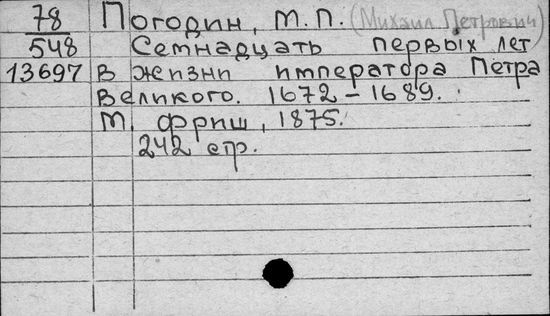 78 Погодин, М.П. (Михаил Петрович)
548 Семнадцать первых лет
13697 в жизни императора Петра
Великого. 1672-1689.
М, Фриш, 1875.
242 стр.